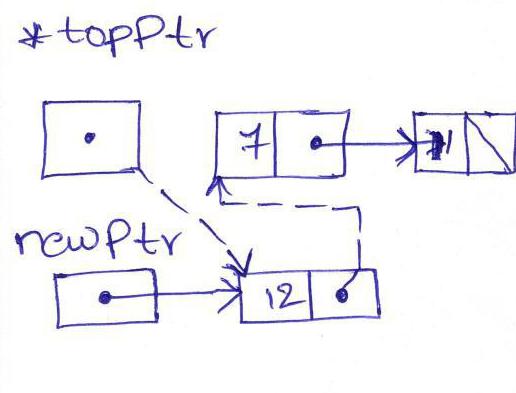 *topPtr
7
11
newPtr
12